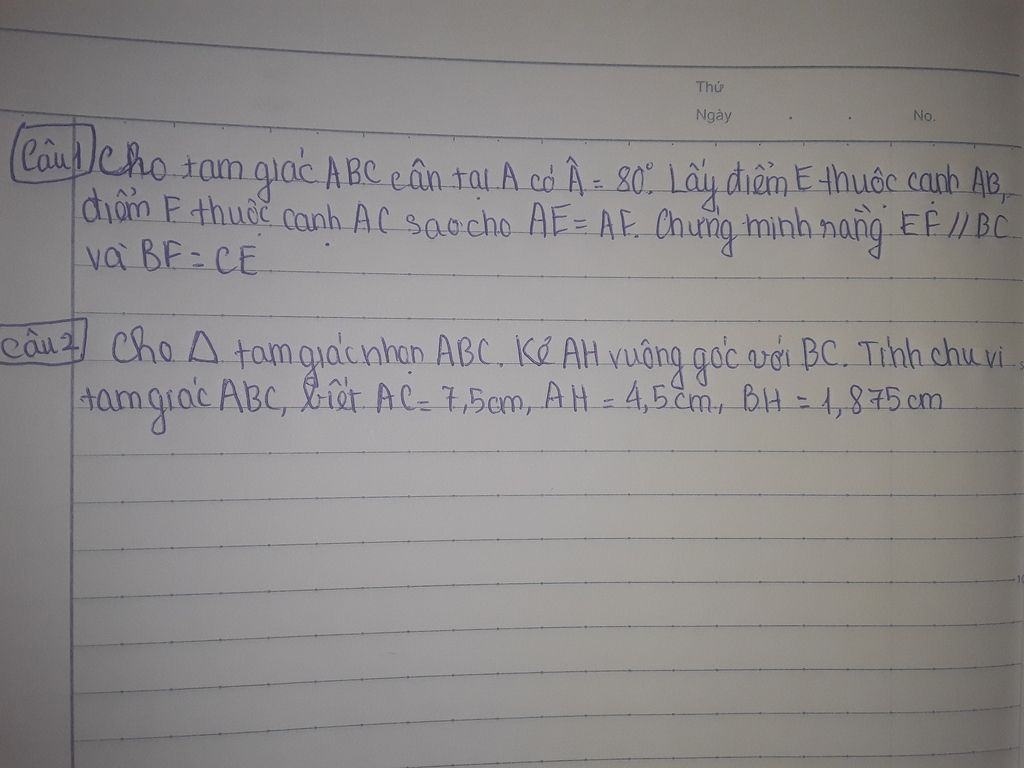 Thứ
Ngày . . No.
Câu 1 Cho tam giác ABC cân tại A có Â = 80°. Lấy điểm E thuộc cạnh AB,
điểm F thuộc cạnh AC sao cho AE = AF. Chứng minh rằng EF // BC
và BF = CE
Câu 2 Cho Δ tam giác nhọn ABC. Kẻ AH vuông góc với BC. Tính chu vi
tam giác ABC, biết AC = 7,5cm, AH = 4,5cm, BH = 1,875cm